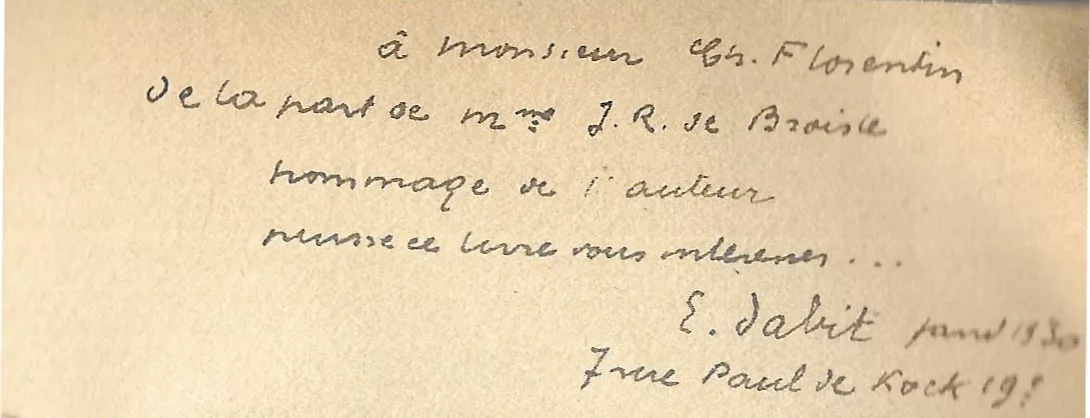 à Monsieur Ch. Florentin
de la part de Mme J. R. de Broisse
hommage de l'auteur
puisse ce livre vous intéresser...
E. Dabit janv 1930
7 rue Paul de Kock 19e